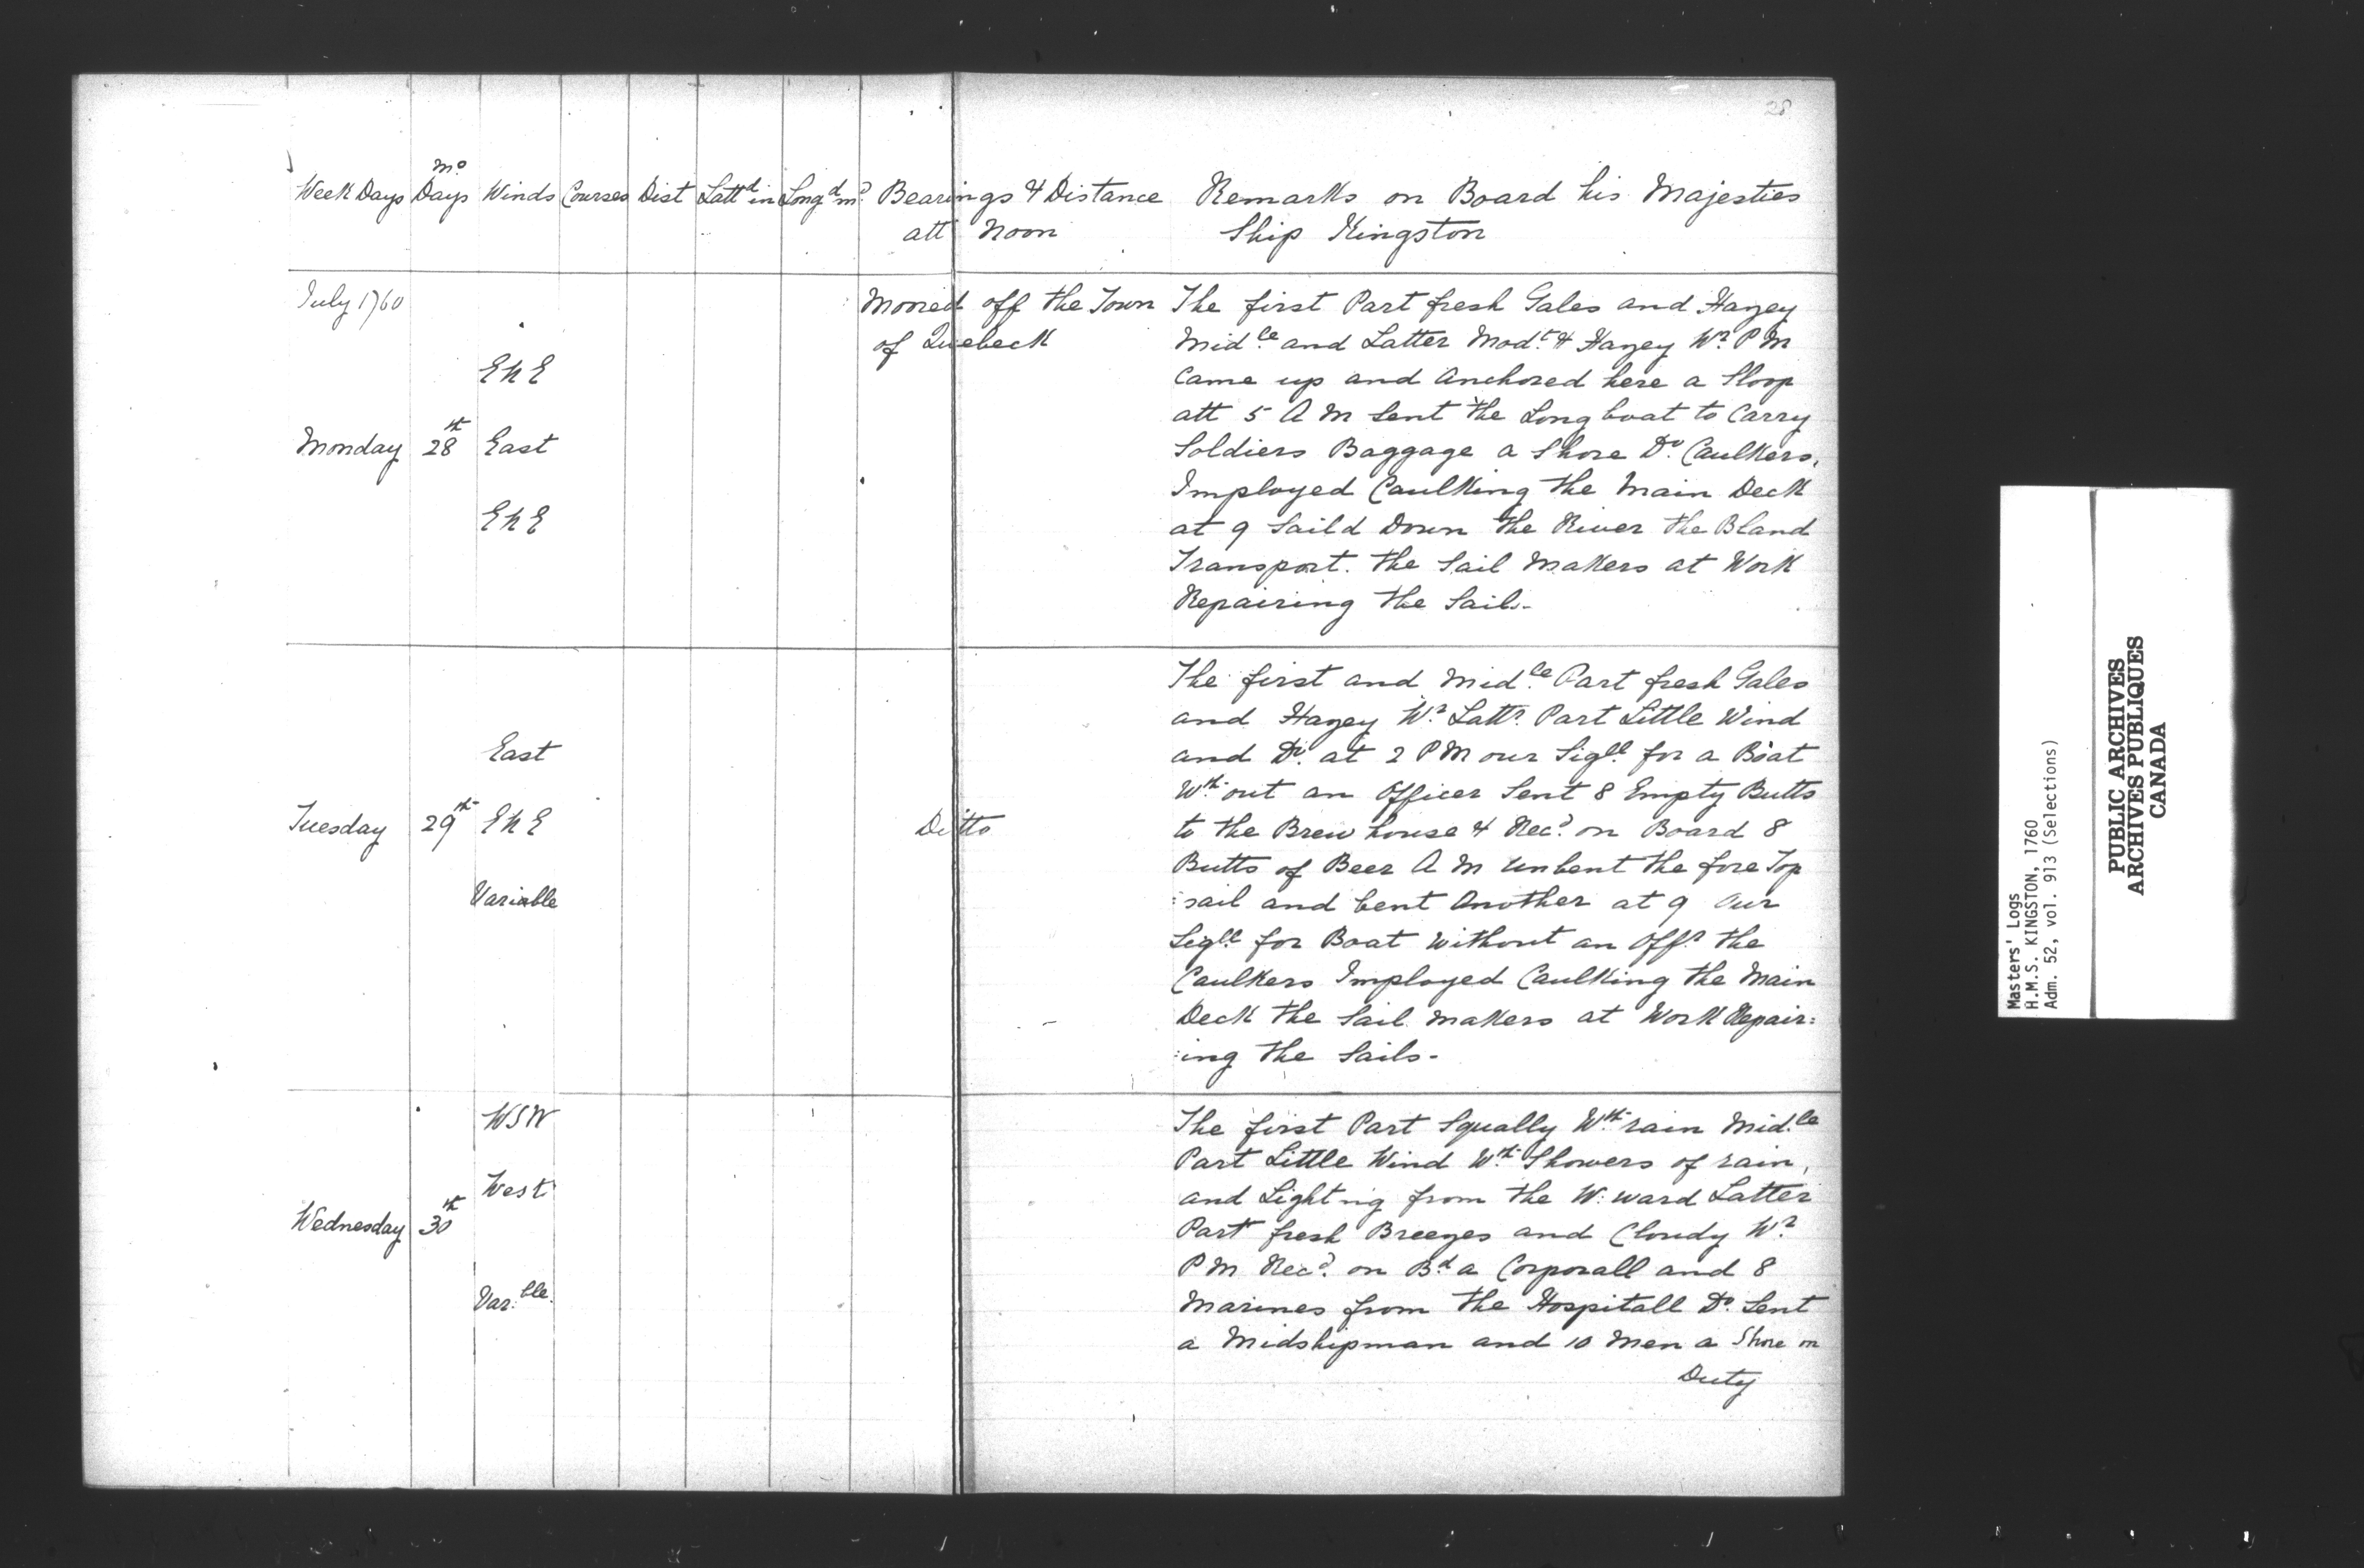 28
Week Days Mo Days Winds Courses Dist Lattd in Longd in Bearings & Distance att Noon Remarks on Board his Majesties Ship Kingston
July 1760
Moored off the Town
of Quebeck
Monday 28th
E N E
East
E N E
The first Part fresh Gales and Hazey
Midle and Latter Modt & Hazey Wr P M
Came up and Anchored here a Sloop
att 5 A M Sent the Long boat to Carry
Soldiers Baggage a Shore Do Caulkers
Imployed Caulking the Main Deck
at 9 Saild Down the River the Bland
Transport. the Sail Makers at Work
Repairing the Sails-
Tuesday 29th
East
E N E
Variable
Ditto
The first and Midle Part fresh Gales
and Hazey Wr Lattr Part Little Wind
and Do at 2 P M our Sigll for a Boat
Wth out an Officer Sent 8 Empty Butts
to the Brew house & Recd on Board 8
Butts of Beer A M unbent the fore Top
:sail and bent Another at 9 Our
Sigll for Boat without an Offr the
Caulkers Imployed Caulking the Main
Deck the Sail makers at Work Repair:
:ing the Sails-
Wednesday 30th
W S W
West
Var.ble
The first Part Squally Wth rain Midle
Part Little Wind Wth Showers of rain,
and Lighting from the W:ward Latter
Part fresh Breezes and Cloudy Wr
P M Recd on Bd a Corporall and 8
Marines from the Hospitall Do Sent
a Midshipman and 10 Men a Shore on
Duty
Masters' Logs
H.M.S. KINGSTON, 1760
Adm. 52, vol. 913 (Selections)
PUBLIC ARCHIVES
ARCHIVES PUBLIQUES
CANADA